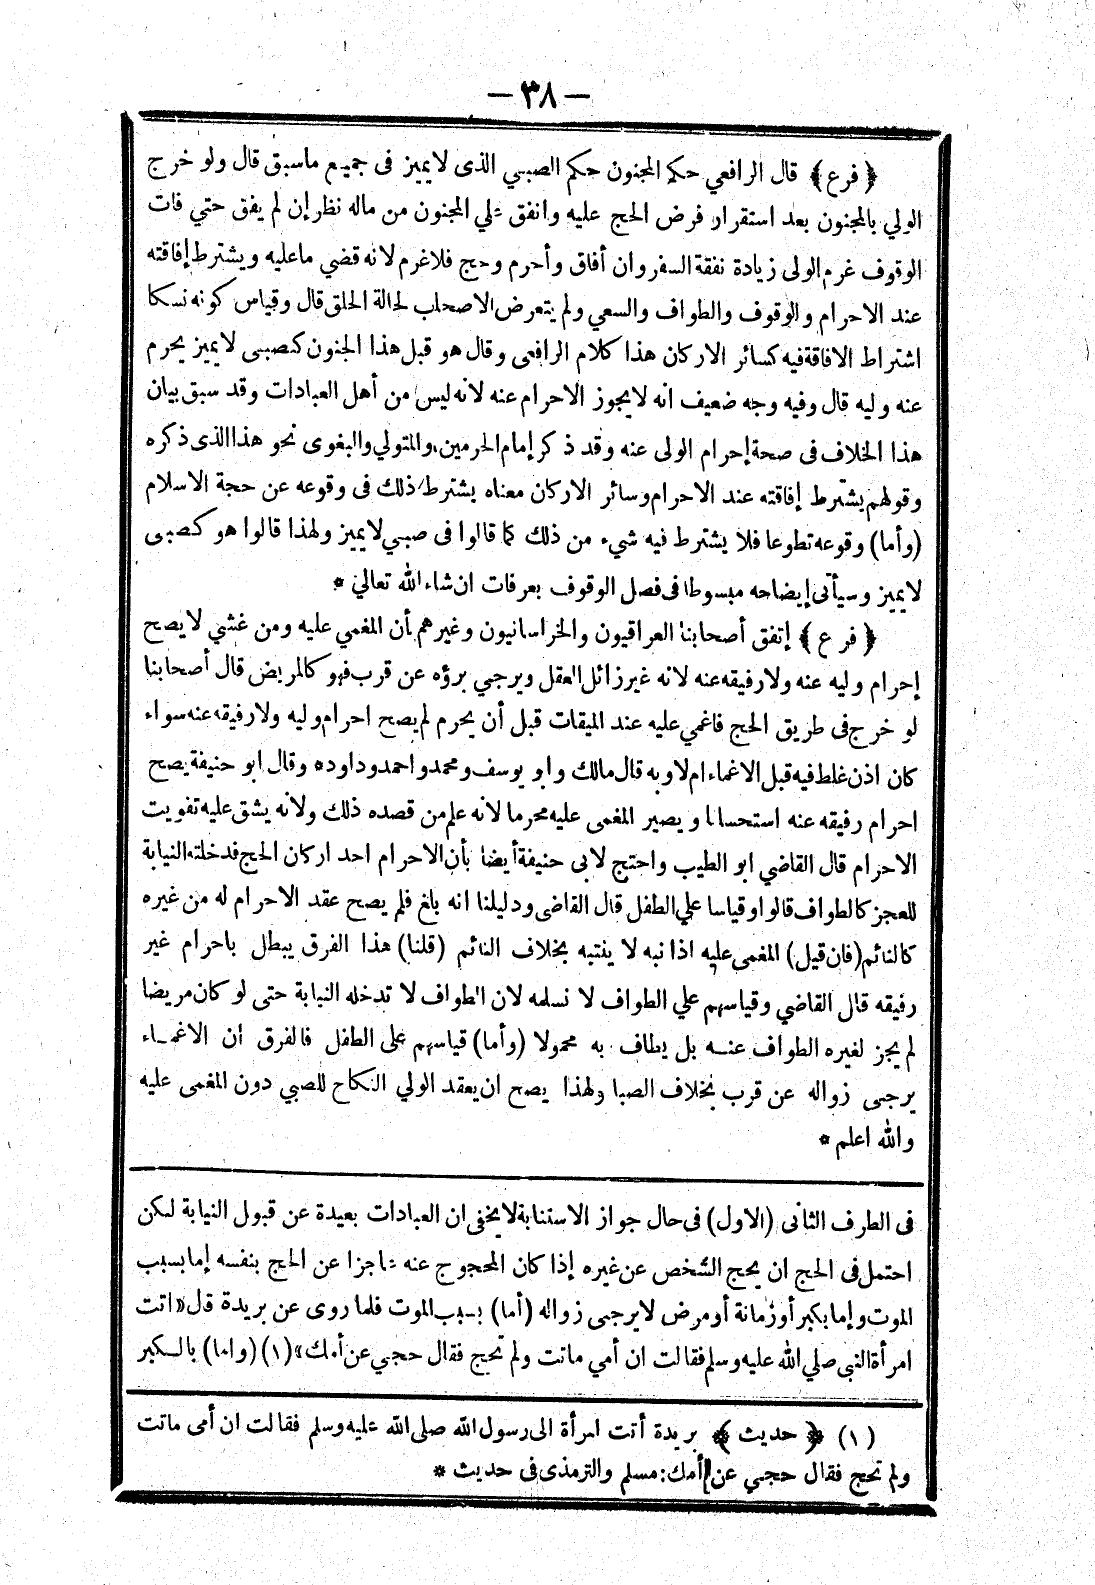 — ٣٨ —
﴿ فرع ﴾ قال الرافعي حكم المجنون حكم الصبي الذى لا يميز فى جميع ماسبق قال ولو خرج
الولي بالمجنون بعد استقرار فرض الحج عليه وانفق على المجنون من ماله نظر إن لم يفق حتي فات
الوقوف غرم الولى زيادة نفقة السفر وان أفاق وأحرم وحج فلا غرم لانه قضي ماعليه ويشترط إفاقته
عند الاحرام والوقوف والطواف والسعي ولم يتعرض الاصحاب لحالة الحلق قال وقياس كونه نسكا
اشتراط الافاقة فيه كسائر الاركان هذا كلام الرافعى وقال هو قبل هذا الجنون كصبى لا يميز يحرم
عنه وليه قال وفيه وجه ضعيف انه لا يجوز الاحرام عنه لانه ليس من أهل العبادات وقد سبق بيان
هذا الخلاف فى صحة إحرام الولى عنه وقد ذكر إمام الحرمين والمتولي والبغوى نحو هذا الذى ذكره
وقولهم يشترط إفاقته عند الاحرام وسائر الاركان معناه يشترط ذلك فى وقوعه عن حجة الاسلام
(وأما) وقوعه تطوعا فلا يشترط فيه شيء من ذلك كما قالوا فى صبي لا يميز ولهذا قالوا هو كصبى
لا يميز وسيأتى إيضاحه مبسوطا فى فصل الوقوف بعرفات ان شاء الله تعالي *
﴿ فرع ﴾ إتفق أصحابنا العراقيون والخراسانيون وغيرهم بأن المغمي عليه ومن غشي لا يصح
إحرام وليه عنه ولا رفيقه عنه لانه غير زائل العقل ويرجي برؤه عن قرب فهو كالمريض قال أصحابنا
لو خرج فى طريق الحج فاغمي عليه عند الميقات قبل أن يحرم لم يصح احرام وليه ولا رفيقه عنه سواء
كان اذن غلط فيه قبل الاغماء ام لا وبه قال مالك وابو يوسف ومحمد واحمد وداوده وقال ابو حنيفة يصح
احرام رفيقه عنه استحسانا ويصير المغمى عليه محرما لانه علم من قصده ذلك ولانه يشق عليه تفويت
الاحرام قال القاضي ابو الطيب واحتج لابى حنيفة أيضا بأن الاحرام احد اركان الحج فدخلته النيابة
للعجز كالطواف قالوا وقياسا علي الطفل قال القاضى ودليلنا انه بلغ فلم يصح عقد الاحرام له من غيره
كالنائم (فان قيل) المغمى عليه اذا نبه لا ينتبه بخلاف النائم (قلنا) هذا الفرق يبطل باحرام غير
رفيقه قال القاضي وقياسهم علي الطواف لا نسلمه لان الطواف لا تدخله النيابة حتى لو كان مريضا
لم يجز لغيره الطواف عنه بل يطاف به محمولا (وأما) قياسهم على الطفل فالفرق ان الاغماء
يرجى زواله عن قرب بخلاف الصبا ولهذا يصح ان يعقد الولي النكاح للصبي دون المغمى عليه
والله اعلم *
فى الطرف الثانى (الاول) فى حال جواز الاستنابة لا يخفى ان العبادات بعيدة عن قبول النيابة لكن
احتمل فى الحج ان يحج الشخص عن غيره إذا كان المحجوج عنه عاجزا عن الحج بنفسه إما بسبب
الموت وإما بكبر أو زمانة أو مرض لا يرجى زواله (أما) بسبب الموت فلما روى عن بريدة قال «اتت
امرأة النبى صلي الله عليه وسلم فقالت ان أمي ماتت ولم تحج فقال حجي عن أمك» (١) (واما) بالكبر
(١) ﴿ حديث ﴾ بريدة أتت امرأة الى رسول الله صلى الله عليه وسلم فقالت ان أمى ماتت
ولم تحج فقال حجي عن أمك: مسلم والترمذى فى حديث *